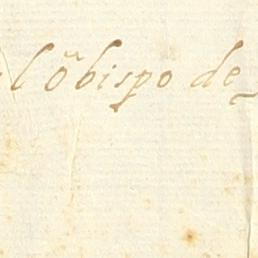 l oᵘbispo de